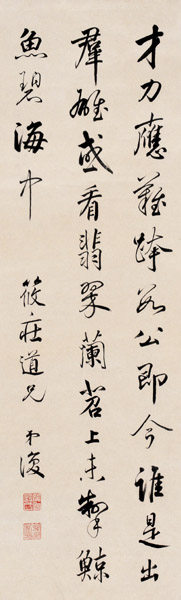 才力應難跨數公即今誰是出
羣雄或看翡翠蘭苕上未掣鯨
魚碧海中
筱莊道兄 弟